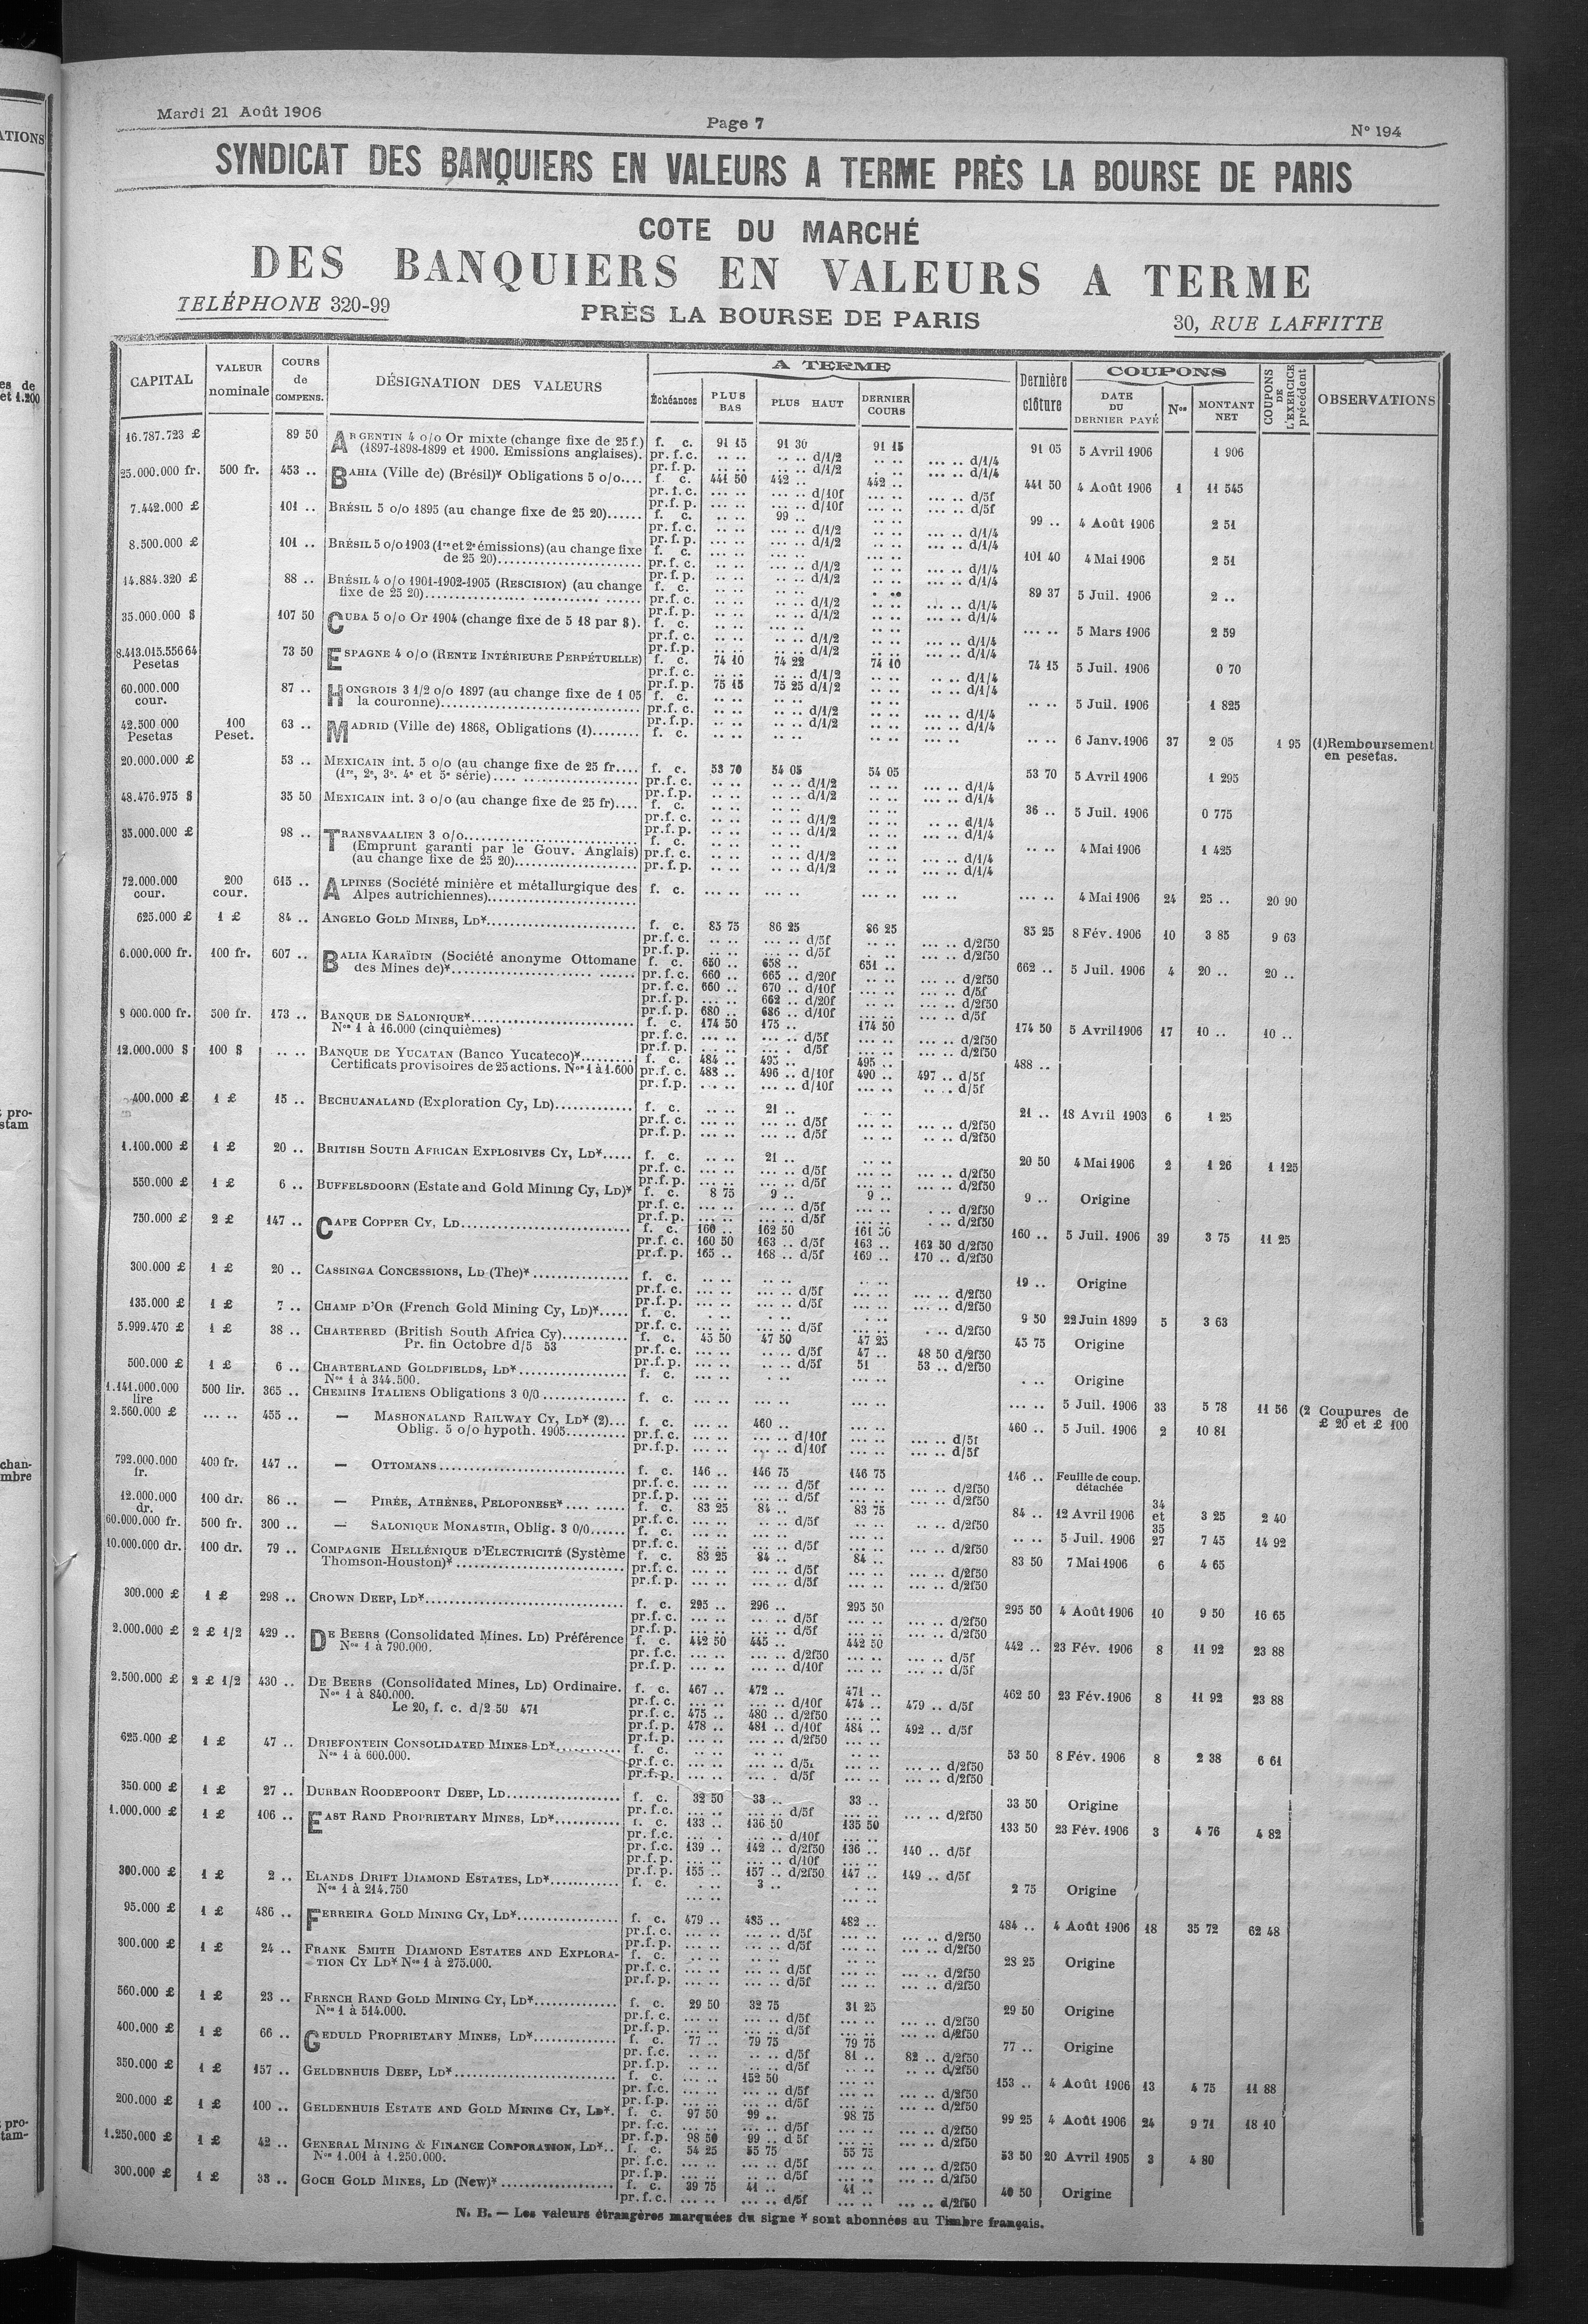 Mardi 21 Août 1906
Page 7
N° 194
SYNDICAT DES BANQUIERS EN VALEURS A TERME PRÈS LA BOURSE DE PARIS
COTE DU MARCHÉ
DES BANQUIERS EN VALEURS A TERME
TELÉPHONE 320-99
PRÈS LA BOURSE DE PARIS
30, RUE LAFFITTE
CAPITAL VALEUR nominale COURS de COMPENS. DÉSIGNATION DES VALEURS A TERME Échéances PLUS BAS PLUS HAUT DERNIER COURS Dernière clôture COUPONS DATE DU DERNIER PAYÉ Nos MONTANT NET COUPONS DE L'EXERCICE précédent OBSERVATIONS
16.787.723 £ 89 50 ARGENTIN 4 o/o Or mixte (change fixe de 25 f.) f. c. 91 15 91 30 91 15 91 05 5 Avril 1906 1 906
(1897-1898-1899 et 1900. Emissions anglaises). pr. f. c. .. .. .. .. d/1/2 .. .. ... .. d/1/4
25.000.000 fr. 500 fr. 453 .. BAHIA (Ville de) (Brésil)* Obligations 5 o/o.... f. c. 441 50 442 .. 442 .. 441 50 4 Août 1906 1 11 545
7.442.000 £ 101 .. BRÉSIL 5 o/o 1895 (au change fixe de 25 20)...... f. c. .. .. 99 .. .. .. 99 .. 4 Août 1906 2 51
8.500.000 £ 101 .. BRÉSIL 5 o/o 1903 (1re et 2e émissions) (au change fixe f. c. 101 40 4 Mai 1906 2 51
de 25 20)
14.884.320 £ 88 .. BRÉSIL 4 o/o 1901-1902-1905 (RESCISION) (au change f. c. 89 37 5 Juil. 1906 2 ..
fixe de 25 20)
35.000.000 $ 107 50 CUBA 5 o/o Or 1904 (change fixe de 5 18 par $). f. c. ... .. 5 Mars 1906 2 59
8.413.015.556 64 Pesetas 73 50 ESPAGNE 4 o/o (RENTE INTÉRIEURE PERPÉTUELLE) f. c. 74 10 74 22 74 10 74 15 5 Juil. 1906 0 70
pr.f.p. 75 15 75 25 d/1/2
60.000.000 cour. 87 .. HONGROIS 3 1/2 o/o 1897 (au change fixe de 1 05 f. c. .. .. 5 Juil. 1906 1 825
la couronne)
42.500 000 Pesetas 100 Peset. 63 .. MADRID (Ville de) 1868, Obligations (1)........ f. c. .. .. 6 Janv. 1906 37 2 05 1 95 (1) Remboursement
en pesetas.
20.000.000 £ 53 .. MEXICAIN int. 5 o/o (au change fixe de 25 fr.... f. c. 53 70 54 05 54 05 53 70 5 Avril 1906 1 295
(1re, 2e, 3e. 4e et 5e série)
48.476.975 $ 35 50 MEXICAIN int. 3 o/o (au change fixe de 25 fr).... f. c. 36 .. 5 Juil. 1906 0 775
35.000.000 £ 98 .. TRANSVAALIEN 3 o/o f. c. .. .. 4 Mai 1906 1 425
(Emprunt garanti par le Gouv. Anglais) pr. f. c. d/1/2 d/1/4
(au change fixe de 25 20) pr. f. p. d/1/2 d/1/4
72.000.000 cour. 200 cour. 615 .. ALPINES (Société minière et métallurgique des f. c. ... .. 4 Mai 1906 24 25 .. 20 90
Alpes autrichiennes)
625.000 £ 1 £ 84 .. ANGELO GOLD MINES, LD* f. c. 85 75 86 25 86 25 85 25 8 Fév. 1906 10 3 85 9 63
6.000.000 fr. 100 fr. 607 .. BALIA KARAÏDIN (Société anonyme Ottomane f. c. 650 .. 658 .. 651 .. 662 .. 5 Juil. 1906 4 20 .. 20 ..
des Mines de)* pr.f.c. 660 .. 665 .. d/20f ... .. d/2f50
pr.f.c. 660 .. 670 .. d/10f ... .. d/5f
pr.f.p. ... .. 662 .. d/20f ... .. d/2f50
pr.f.p. 680 .. 686 .. d/10f ... .. d/5f
8 000.000 fr. 500 fr. 173 .. BANQUE DE SALONIQUE* f. c. 174 50 175 .. 174 50 174 50 5 Avril 1906 17 10 .. 10 ..
Nos 1 à 16.000 (cinquièmes)
12.000.000 $ 100 $ .. .. BANQUE DE YUCATAN (Banco Yucateco)* f. c. 484 .. 495 .. 495 .. 488 ..
Certificats provisoires de 25 actions. Nos 1 à 1.600 pr.f.c. 488 .. 496 .. d/10f 490 .. 497 .. d/5f
400.000 £ 1 £ 15 .. BECHUANALAND (Exploration Cy, LD) f. c. .. .. 21 .. 21 .. 18 Avril 1903 6 1 25
1.100.000 £ 1 £ 20 .. BRITISH SOUTH AFRICAN EXPLOSIVES CY, LD* f. c. .. .. 21 .. 20 50 4 Mai 1906 2 1 26 1 125
550.000 £ 1 £ 6 .. BUFFELSDOORN (Estate and Gold Mining Cy, LD)* f. c. 8 75 9 .. 9 .. 9 .. Origine
750.000 £ 2 £ 147 .. CAPE COPPER CY, LD f. c. 160 .. 162 50 161 50 160 .. 5 Juil. 1906 39 3 75 11 25
pr.f.c. 160 50 163 .. d/5f 163 .. 163 50 d/2f50
pr.f.p. 165 .. 168 .. d/5f 169 .. 170 .. d/2f50
300.000 £ 1 £ 20 .. CASSINGA CONCESSIONS, LD (The)* f. c. 19 .. Origine
135.000 £ 1 £ 7 .. CHAMP D'OR (French Gold Mining Cy, LD)* f. c. 9 50 22 Juin 1899 5 3 63
5.999.470 £ 1 £ 38 .. CHARTERED (British South Africa Cy) f. c. 45 50 47 50 47 25 45 75 Origine
Pr. fin Octobre d/5 53 pr.f.c. .. .. .. .. d/5f 47 .. 48 50 d/2f50
pr.f.p. .. .. .. .. d/5f 51 53 .. d/2f50
500.000 £ 1 £ 6 .. CHARTERLAND GOLDFIELDS, LD* f. c. Origine
Nos 1 à 344.500.
1.141.000.000 lire 500 lir. 365 .. CHEMINS ITALIENS Obligations 3 0/0 f. c. ... .. 5 Juil. 1906 33 5 78 11 56
2.560.000 £ ... .. 455 .. — MASHONALAND RAILWAY CY, LD* (2)... f. c. ... .. 460 .. 460 .. 5 Juil. 1906 2 10 81 (2 Coupures de
Oblig. 5 o/o hypoth. 1905 £ 20 et £ 100
792.000.000 fr. 400 fr. 147 .. — OTTOMANS f. c. 146 .. 146 75 146 75 146 .. Feuille de coup. détachée
12.000.000 dr. 100 dr. 86 .. — PIRÉE, ATHÈNES, PELOPONESE* f. c. 83 25 84 .. 83 75 84 .. 12 Avril 1906 34 et 35 3 25 2 40
60.000.000 fr. 500 fr. 300 .. — SALONIQUE MONASTIR, Oblig. 3 0/0 f. c. .. .. 5 Juil. 1906 27 7 45 14 92
10.000.000 dr. 100 dr. 79 .. COMPAGNIE HELLÉNIQUE D'ELECTRICITÉ (Système f. c. 83 25 84 .. 84 .. 83 50 7 Mai 1906 6 4 65
Thomson-Houston)*
300.000 £ 1 £ 298 .. CROWN DEEP, LD* f. c. 295 .. 296 .. 295 50 295 50 4 Août 1906 10 9 50 16 65
2.000.000 £ 2 £ 1/2 429 .. DE BEERS (Consolidated Mines. LD) Préférence f. c. 442 50 445 .. 442 50 442 .. 23 Fév. 1906 8 11 92 23 88
Nos 1 à 790.000.
2.500.000 £ 2 £ 1/2 430 .. DE BEERS (Consolidated Mines, LD) Ordinaire. f. c. 467 .. 472 .. 471 .. 462 50 23 Fév. 1906 8 11 92 23 88
Nos 1 à 840.000. pr.f.c. ... .. ... .. d/10f 474 .. 479 .. d/5f
Le 20, f. c. d/2 50 471 pr.f.c. 475 .. 480 .. d/2f50
pr.f.p. 478 .. 481 .. d/10f 484 .. 492 .. d/5f
625.000 £ 1 £ 47 .. DRIEFONTEIN CONSOLIDATED MINES LD* f. c. 53 50 8 Fév. 1906 8 2 38 6 61
Nos 1 à 600.000.
350.000 £ 1 £ 27 .. DURBAN ROODEPOORT DEEP, LD f. c. 32 50 33 .. 33 .. 33 50 Origine
1.000.000 £ 1 £ 106 .. EAST RAND PROPRIETARY MINES, LD* f. c. 133 .. 136 50 135 50 133 50 23 Fév. 1906 3 4 76 4 82
pr. f.c. 139 .. 142 .. d/2f50 136 .. 140 .. d/5f
pr.f.p. 155 .. 157 .. d/2f50 147 .. 149 .. d/5f
300.000 £ 1 £ 2 .. ELANDS DRIFT DIAMOND ESTATES, LD* f. c. 3 .. 2 75 Origine
Nos 1 à 214.750
95.000 £ 1 £ 486 .. FERREIRA GOLD MINING CY, LD* f. c. 479 .. 485 .. 482 .. 484 .. 4 Août 1906 18 35 72 62 48
300.000 £ 1 £ 24 .. FRANK SMITH DIAMOND ESTATES AND EXPLORA- f. c. 28 25 Origine
TION CY LD* Nos 1 à 275.000.
560.000 £ 1 £ 23 .. FRENCH RAND GOLD MINING CY, LD* f. c. 29 50 32 75 31 25 29 50 Origine
Nos 1 à 514.000.
400.000 £ 1 £ 66 .. GEDULD PROPRIETARY MINES, LD* f. c. 77 .. 79 75 79 75 77 .. Origine
pr. f.c. .. .. .. .. d/5f 81 .. 82 .. d/2f50
350.000 £ 1 £ 157 .. GELDENHUIS DEEP, LD* f. c. ... .. 152 50 153 .. 4 Août 1906 13 4 75 11 88
200.000 £ 1 £ 100 .. GELDENHUIS ESTATE AND GOLD MINING CY, LD*. f. c. 97 50 99 .. 98 75 99 25 4 Août 1906 24 9 71 18 10
pr.f.p. 98 50 99 .. d 5f
1.250.000 £ 1 £ 42 .. GENERAL MINING & FINANCE CORPORATION, LD*.. f. c. 54 25 55 75 55 75 53 50 20 Avril 1905 3 4 80
Nos 1.001 à 1.250.000.
300.000 £ 1 £ 38 .. GOCH GOLD MINES, LD (New)* f. c. 39 75 41 .. 41 .. 40 50 Origine
pr. f. c. ... .. ... .. d/5f ... .. ... .. d/2f50
N. B. — Les valeurs étrangères marquées du signe * sont abonnées au Timbre français.